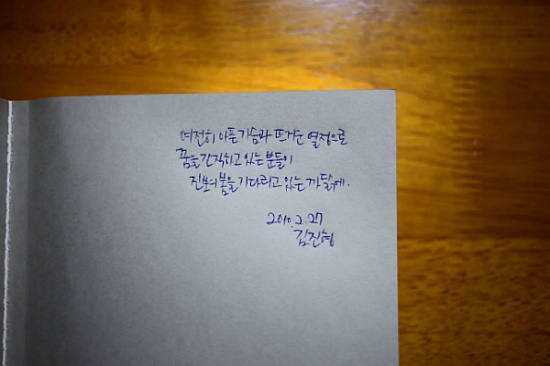 여전히 아픈 가슴과 뜨거운 열정으로
꿈을 간직하고 있는 분들이
진보의 봄을 기다리고 있는 까닭에.
2010. 2. 27
김진형